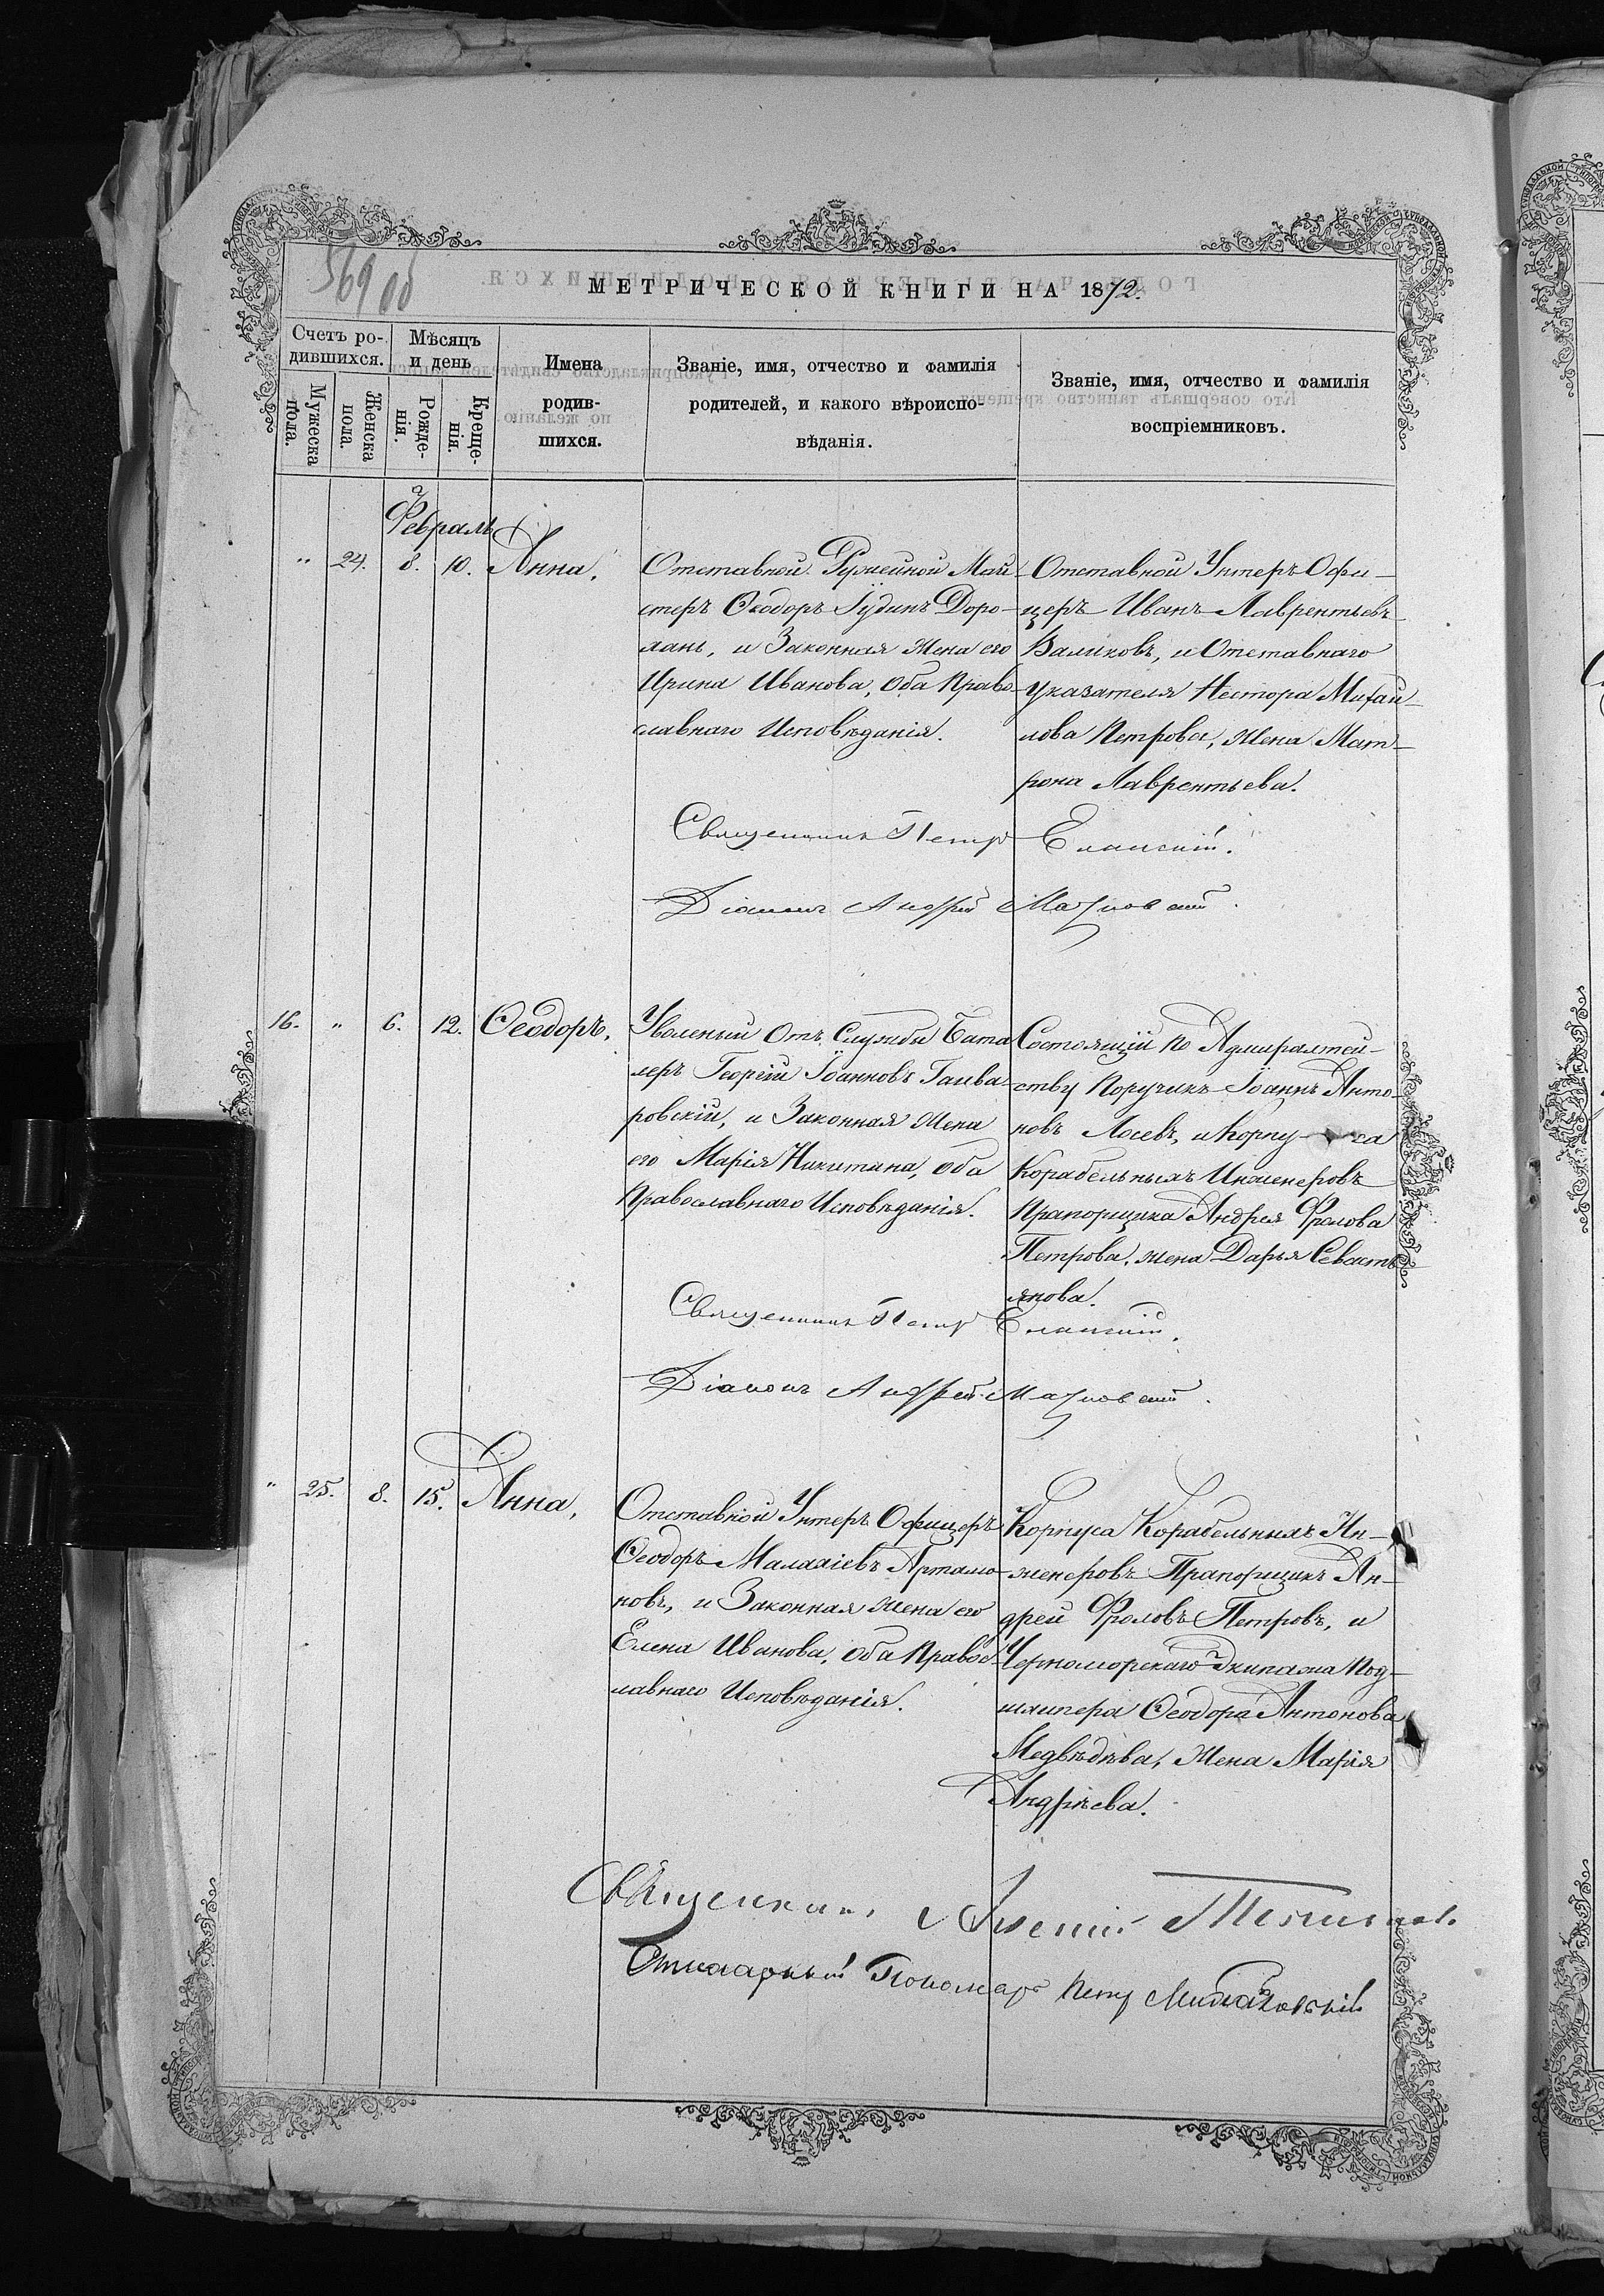 569 об
МЕТРИЧЕСКОЙ КНИГИ НА 1872.
Счетъ ро-
дившихся.
Мужеска
пола.
Женска
пола.
Мѣсяцъ
и день
Рожде-
нія.
Креще-
нія.
Имена
родив-
шихся.
Званіе, имя, отчество и фамилія
родителей, и какого вѣроиспо-
вѣданія.
Званіе, имя, отчество и фамилія
воспріемниковъ.
Февраль
" 24. 8. 10. Анна,
Отставной Ружейной Май-
стеръ Ѳеодоръ Іудинъ Доро-
ланъ, и Законная жена его
Ирина Иванова, оба Право-
славнаго Исповѣданія.
Отставной Унтеръ Офи-
церъ Иванъ Лаврентьевъ
Валиковъ, и Отставнаго
указателя Нестора Михай-
лова Петрова, жена Мат-
рона Лаврентьева.
Священникъ Петръ Еланскій.
Діаконъ Андрей
16. " 6. 12. Ѳеодоръ,
Уволеный отъ Службы Бата
леръ Георгій Іоанновъ Гаива-
ровскій, и Законная жена
его Марія Никитина, оба
Православнаго Исповѣданія.
Состоящій по Адмиралтей-
ству Поручикъ Іоаннъ Анто-
новъ Лосевъ, и Корпу-са
Корабельныхъ Инженеровъ
Прапорщика Андрея Фролова
Петрова, жена Дарья Севасть
янова.
Священникъ Петръ Еланскій.
Діаконъ Андрей
" 25. 8. 15. Анна,
Отставной Унтеръ Офицеръ
Ѳеодоръ Малахіевъ Артамо-
новъ, и Законная жена его
Елена Иванова, оба Правос-
лавнаго Исповѣданія.
Корпуса Корабельныхъ Ин-
женеровъ Прапорщикъ Ан-
дрей Фроловъ Петровъ, и
Черноморскаго Экипажа Под-
шхипера Ѳеодора Антонова
Медвѣдѣва, жена Марія
Андрѣева.
Священникъ
Пономарь Петръ